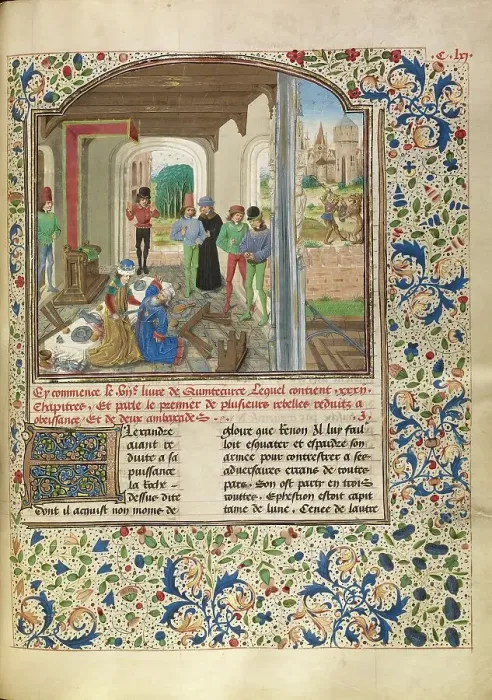 .C. lxj.
Cy commence le viije liure de Quinteaurce Lequel contient .xxxij.
Chapitres, Et parle le premier de plusieurs rebelles reduitz a
obeissance, Et de deux ambaxades. .j.
Alexandre
aiant re
duite a sa
puissance
la roche
dessus dite
Dont il acquist non moins de
gloire que renon Il luy fail
loit esquater et espardre son
armee pour contrester a ses
aduersaires errans de toutes
pars. Son ost party en trois
routtes, Ephestion estoit capi
taine de lune, Cenee de lautre